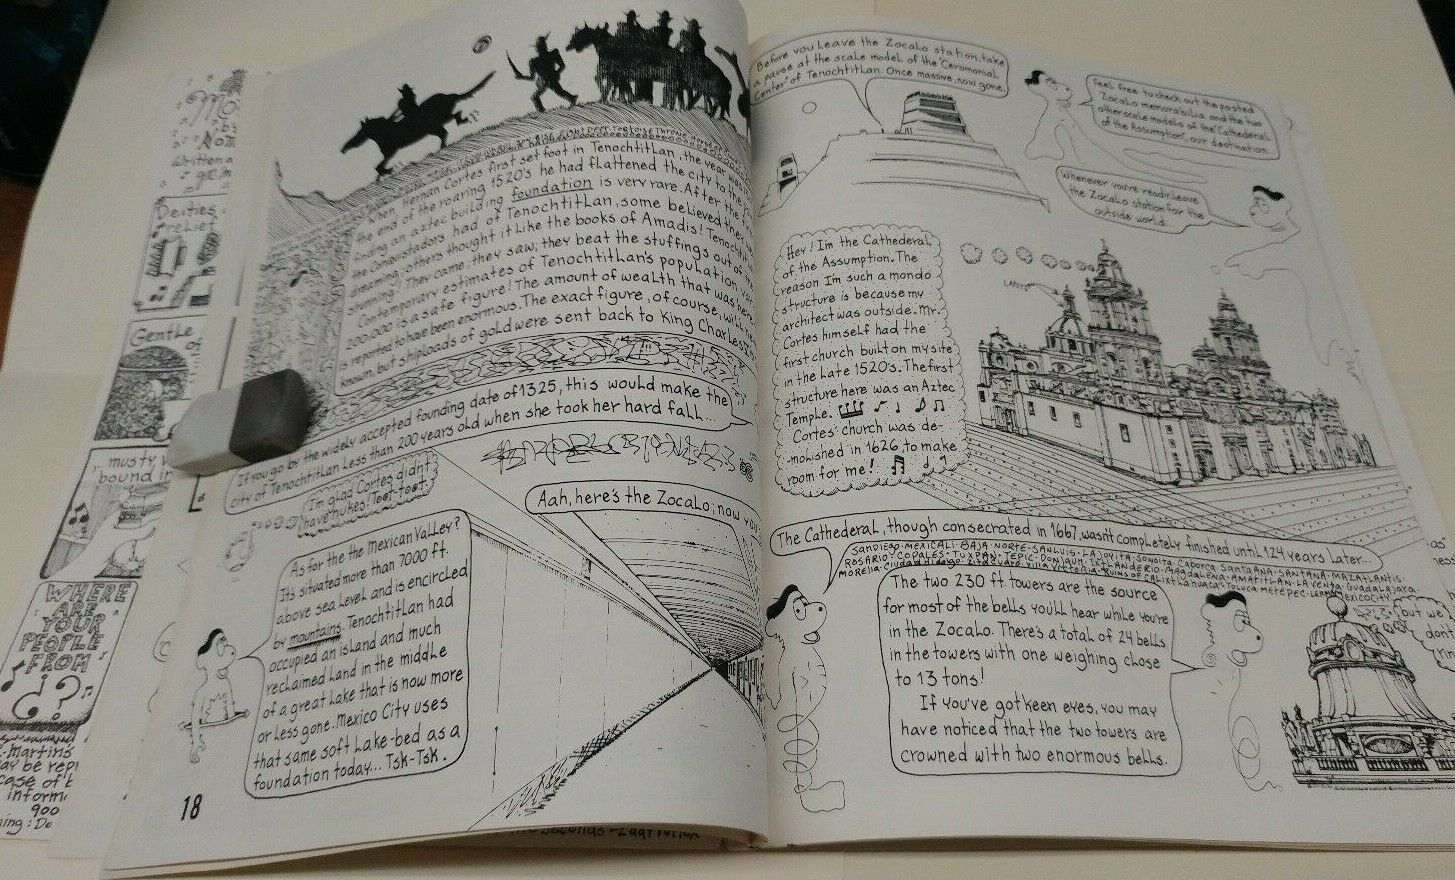 Mo
Written a
Deities,
relief
Gentle
of
musty
bound in
WHERE
ARE
YOUR
PEOPLE
FROM
?
-Martins
ay be rep
case of t
inform
900
ning: Do
When Hernan Cortes first set foot in Tenochtitlan, the year was
the end of the roaring 1520's he had flattened the city to the
finding an aztec building foundation is very rare. After the
the Conquistadors had of Tenochtitlan, some believed they
dreaming; others thought it like the books of Amadis! Tenochtitlan
stunning! They came; they saw; they beat the stuffings out of
Contemporary estimates of Tenochtitlan's population
200,000 is a safe figure! The amount of wealth that was
is reported to have been enormous. The exact figure, of course,
known, but shiploads of gold were sent back to King Charles
If you go by the widely accepted founding date of 1325, this would make the
city of Tenochtitlan less than 200 years old when she took her hard fall...
I'm glad Cortes didn't
have nukes! Toot-toot.
Aah, here's the Zocalo; now you
As for the the Mexican Valley?
Its situated more than 7000 ft.
above sea level and is encircled
by mountains. Tenochtitlan had
occupied an island and much
reclaimed land in the middle
of a great lake that is now more
or less gone. Mexico City uses
that same soft lake-bed as a
foundation today... Tsk-Tsk.
18
Before you leave the Zocalo station, take
a pause at the scale model of the "Ceremonial
Center" of Tenochtitlan. Once massive, now gone
Feel free to check out the posted
Zocalo memorabilia and the two
other scale models of the Cathederal
of the Assumption, our destination.
Whenever you're ready, leave
the Zocalo station for the
outside world.
Hey! Im the Cathederal
of the Assumption. The
reason Im such a mondo
structure is because my
architect was outside. Mr.
Cortes himself had the
first church built on my site
in the late 1520's. The first
structure here was an Aztec
Temple.
Cortes' church was de-
-molished in 1626 to make
room for me!
The Cathederal, though consecrated in 1667, wasn't completely finished until 124 years later...
SANDIEGO-MEXICALI-BAJA NORTE-SANLUIS-LAJOYITA-SONOITA-CABORCA-SANTAANA-SANTANA-MAZATLANTIS-
ROSARIO-COPALES-TUXPAN-TEPIC-DOMJUAN-IXTLANDERIO-MAGDALENA-AMATITLAN-LAVENTA-GUADALAJARA-
MORELIA-CIUDAD HIDALGO-ZITACUARO-VILLA VICTORIA-RUINS OF CALIXTLAHUACA-TOLUCA-METEPEC-LERMA-MEXICO CITY
The two 230 ft towers are the source
for most of the bells youll hear while you're
in the Zocalo. There's a total of 24 bells
in the towers with one weighing close
to 13 tons!
If you've got keen eyes, you may
have noticed that the two towers are
crowned with two enormous bells.
but we
don
rin